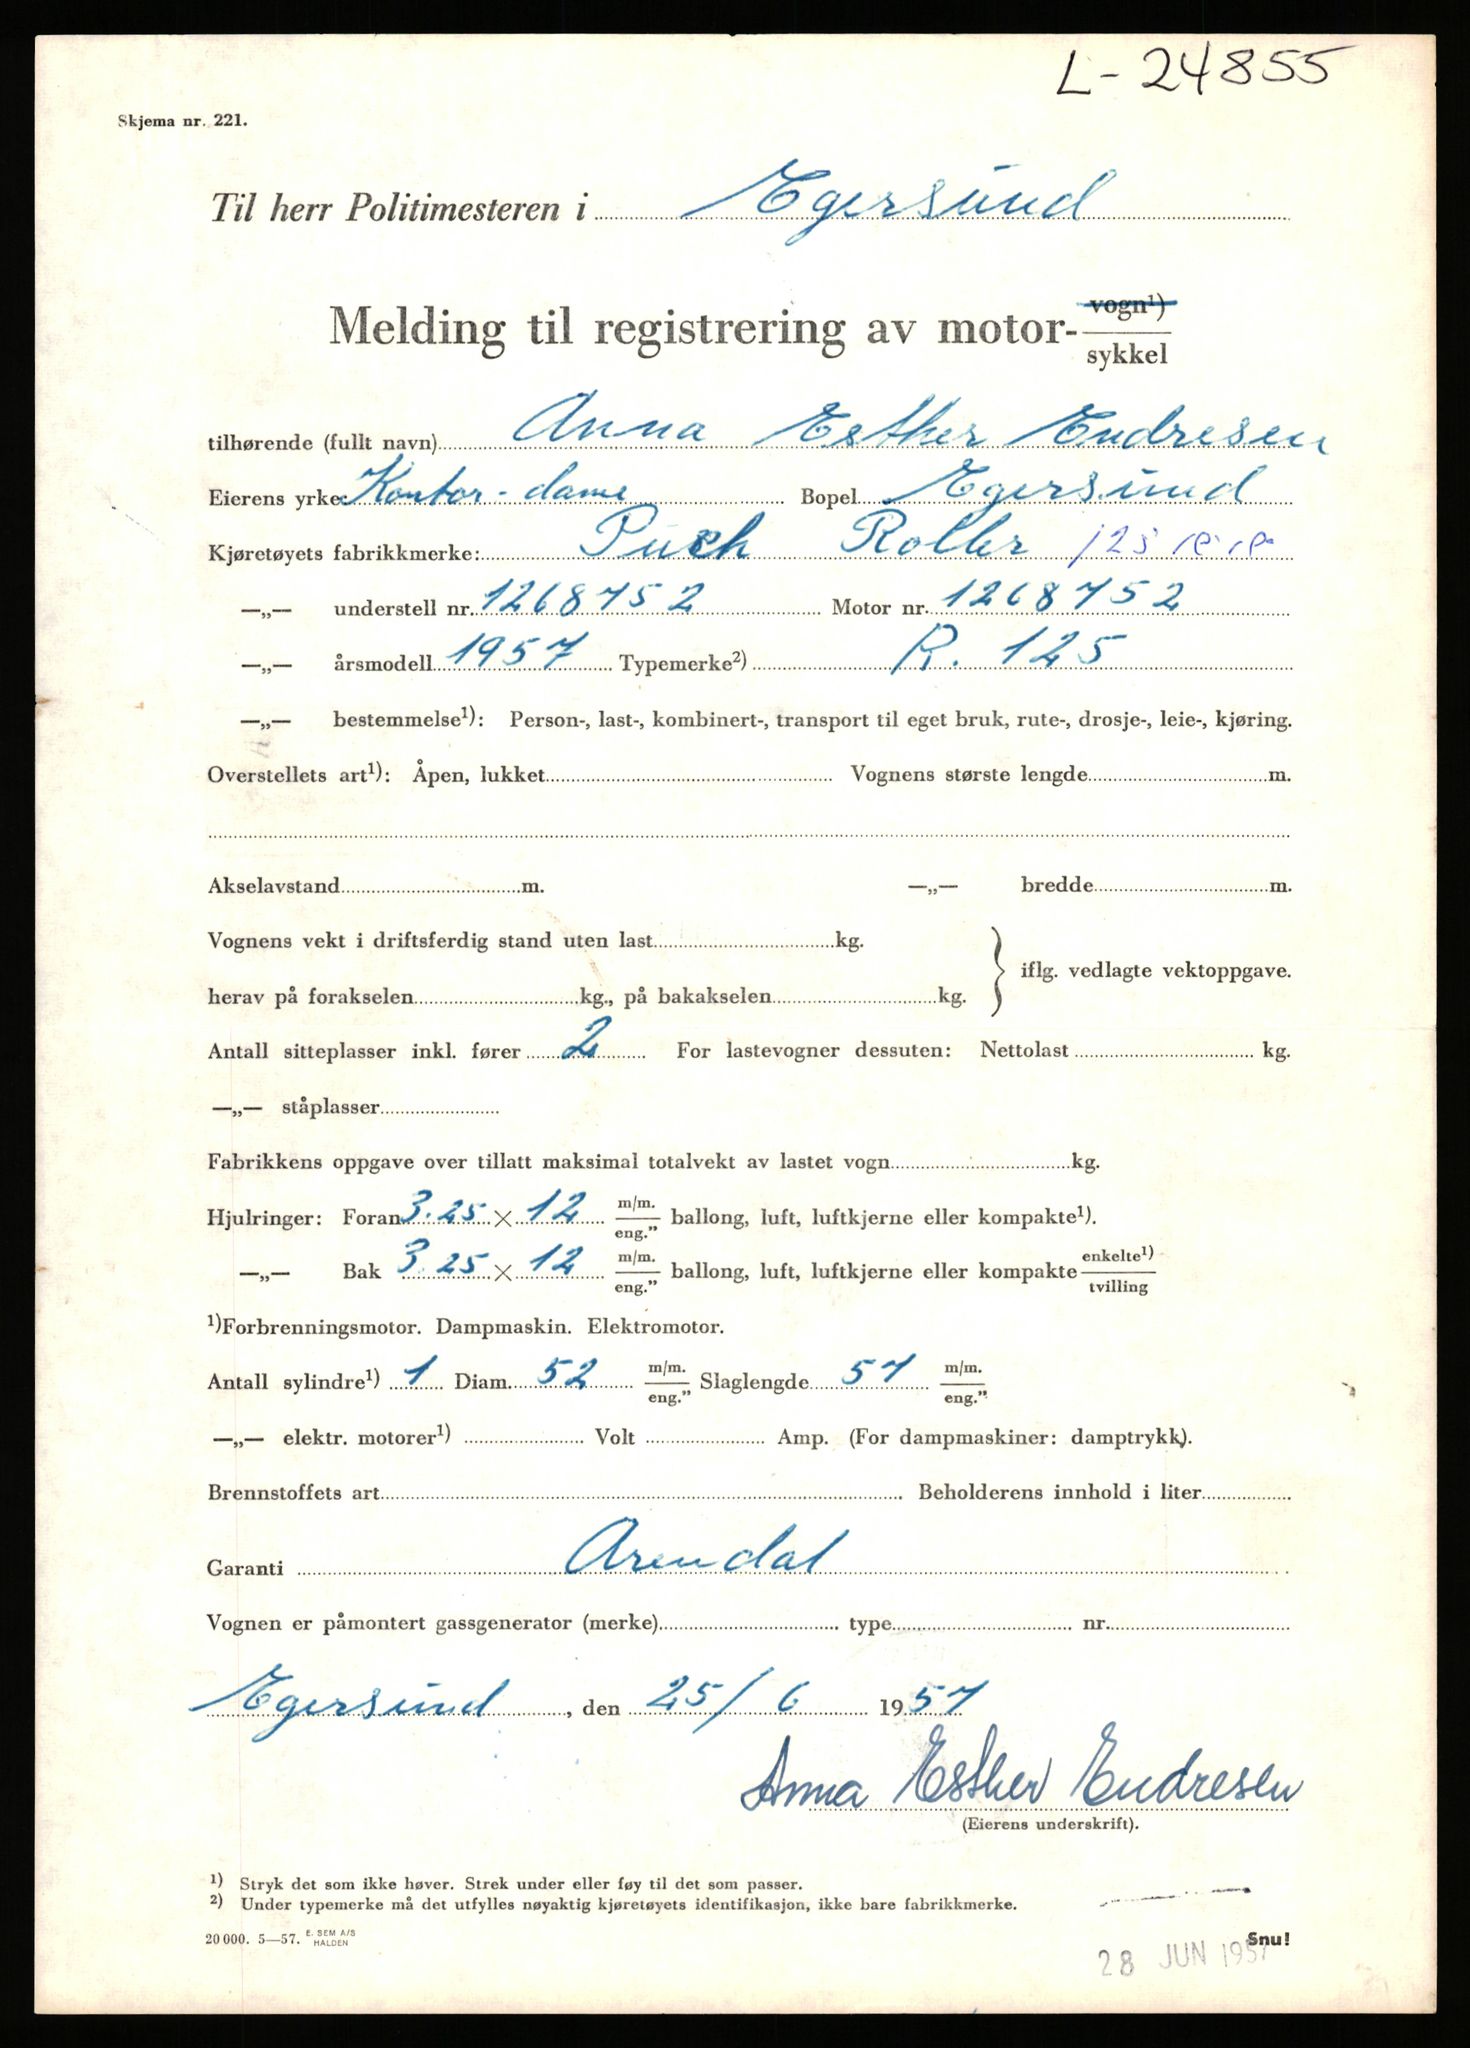 L-24855
Skjema nr. 221.
Til herr Politimesteren i Egersund
Melding til registrering av motor- vogn¹) sykkel
tilhørende (fullt navn) Anna Esther Endresen
Eierens yrke: Kontor-dame Bopel Egersund
Kjøretøyets fabrikkmerke: Puch Roller 125
—„— understell nr. 1268752 Motor nr. 1268752
—„— årsmodell 1957 Typemerke²) R. 125
—„— bestemmelse¹): Person-, last-, kombinert-, transport til eget bruk, rute-, drosje-, leie-, kjøring.
Overstellets art¹): Åpen, lukket : Vognens største lengde m.
Akselavstand m. —„— bredde m.
Vognens vekt i driftsferdig stand uten last kg.
iflg. vedlagte vektoppgave.
herav på forakselen kg., på bakakselen kg.
Antall sitteplasser inkl. fører 2 For lastevogner dessuten: Nettolast kg.
—„— ståplasser
Fabrikkens oppgave over tillatt maksimal totalvekt av lastet vogn kg.
Hjulringer: Foran 3.25 × 12 m/m. eng.” ballong, luft, luftkjerne eller kompakte¹).
—„— Bak 3.25 × 12 m/m. eng.” ballong, luft, luftkjerne eller kompakte enkelte¹) tvilling
¹)Forbrenningsmotor. Dampmaskin. Elektromotor.
Antall sylindre¹) 1 Diam. 52 m/m. eng.” Slaglengde 57 m/m. eng.”
—„— elektr. motorer¹) Volt Amp. (For dampmaskiner: damptrykk).
Brennstoffets art Beholderens innhold i liter
Garanti Arendal
Vognen er påmontert gassgenerator (merke) type nr.
Egersund, den 25/6 1957
Anna Esther Endresen
(Eierens underskrift).
¹) Stryk det som ikke høver. Strek under eller føy til det som passer.
²) Under typemerke må det utfylles nøyaktig kjøretøyets identifikasjon, ikke bare fabrikkmerke.
20 000. 5—57. E. SEM A/S HALDEN
Snu!
28 JUN 1957